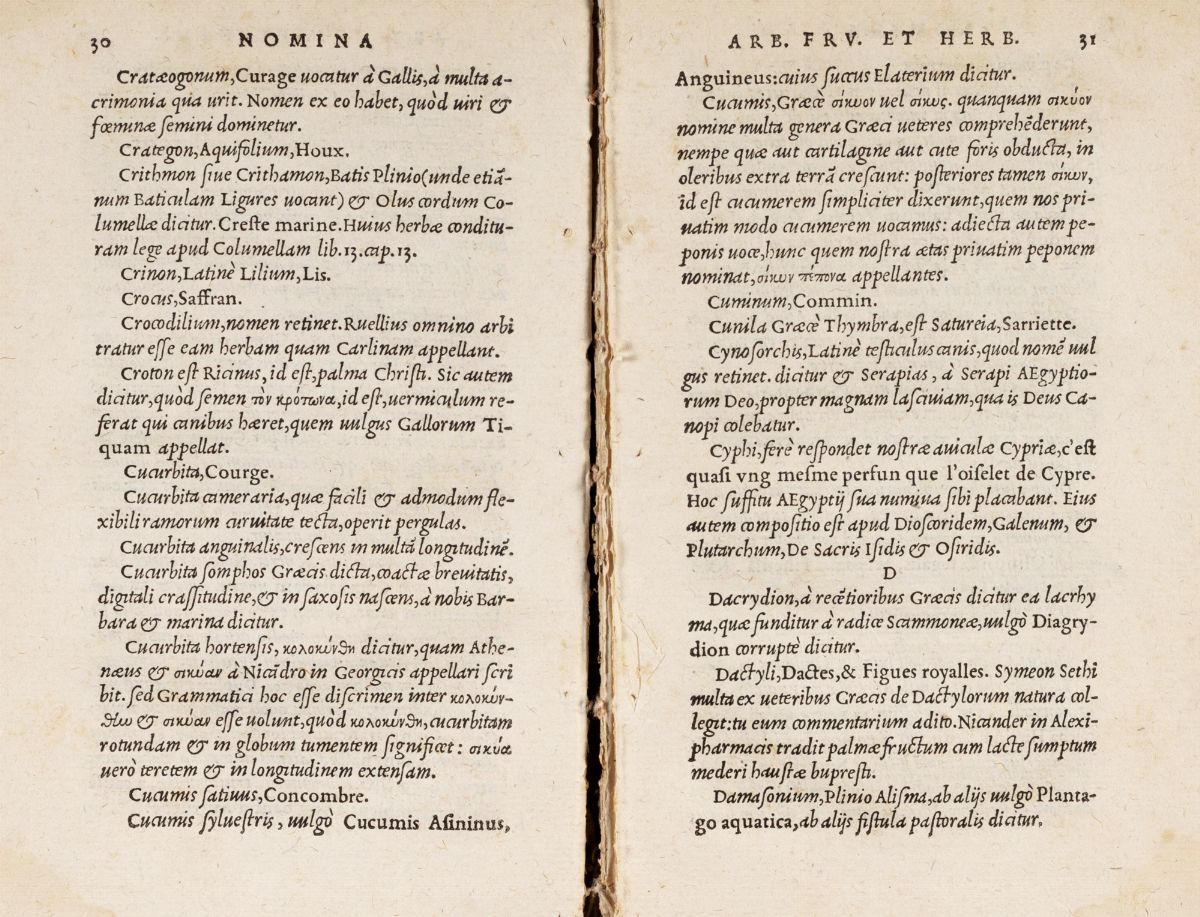 30 NOMINA
Cratæogonum, Curage uocatur à Gallis, à multa a-
crimonia qua urit. Nomen ex eo habet, quòd uiri &
fœminæ semini dominetur.
Crategon, Aquifolium, Houx.
Crithmon siue Crithamon, Batis Plinio (unde etiã-
num Baticulam Ligures uocant) & Olus cordum Co-
lumellæ dicitur. Creste marine. Huius herbæ conditu-
ram lege apud Columellam lib. 13. cap. 13.
Crinon, Latinè Lilium, Lis.
Crocus, Saffran.
Crocodilium, nomen retinet. Ruellius omnino arbi
tratur esse eam herbam quam Carlinam appellant.
Croton est Ricinus, id est, palma Christi. Sic autem
dicitur, quòd semen τὸν κρότωνα, id est, uermiculum re-
ferat qui canibus hæret, quem uulgus Gallorum Ti-
quam appellat.
Cucurbita, Courge.
Cucurbita cameraria, quæ facili & admodum fle-
xibili ramorum curuitate tecta, operit pergulas.
Cucurbita anguinalis, crescens in multã longitudinẽ.
Cucurbita somphos Græcis dicta, coactæ breuitatis,
digitali crassitudine, & in saxosis nascens, à nobis Bar-
bara & marina dicitur.
Cucurbita hortensis, κολοκύνθη dicitur, quam Athe-
næus & σικύαν à Nicãdro in Georgicis appellari scri
bit. sed Grammatici hoc esse discrimen inter κολοκύν-
θην & σικύαν esse uolunt, quòd κολοκύνθη, cucurbitam
rotundam & in globum tumentem significet: σικύα
uerò teretem & in longitudinem extensam.
Cucumis satiuus, Concombre.
Cucumis syluestris, uulgò Cucumis Asininus,
ARB. FRV. ET HERB. 31
Anguineus: cuius succus Elaterium dicitur.
Cucumis, Græcè σίκυον uel σίκυς. quanquam σικύον
nomine multa genera Græci ueteres comprehẽderunt,
nempe quæ aut cartilagine aut cute foris obducta, in
oleribus extra terrã crescunt: posteriores tamen σίκυν,
id est cucumerem simpliciter dixerunt, quem nos pri-
uatim modo cucumerem uocamus: adiecta autem pe-
ponis uoce, hunc quem nostra ætas priuatim peponem
nominat, σίκυν πέπονα appellantes.
Cuminum, Commin.
Cunila Græcè Thymbra, est Satureia, Sarriette.
Cynosorchis, Latinè testiculus canis, quod nomẽ uul
gus retinet. dicitur & Serapias, à Serapi AEgyptio-
rum Deo, propter magnam lasciuiam, qua is Deus Ca-
nopi colebatur.
Cyphi, ferè respondet nostræ auiculæ Cypriæ, c'est
quasi vng mesme perfun que l'oiselet de Cypre.
Hoc suffitu AEgyptij sua numina sibi placabant. Eius
autem compositio est apud Dioscoridem, Galenum, &
Plutarchum, De Sacris Isidis & Osiridis.
D
Dacrydion, à recẽtioribus Græcis dicitur ea lacrhy
ma, quæ funditur à radice Scammoneæ, uulgò Diagry-
dion corruptè dicitur.
Dactyli, Dactes, & Figues royalles. Symeon Sethi
multa ex ueteribus Græcis de Dactylorum natura col-
legit: tu eum commentarium adito. Nicander in Alexi-
pharmacis tradit palmæ fructum cum lacte sumptum
mederi haustæ bupresti.
Damasonium, Plinio Alisma, ab alijs uulgò Planta-
go aquatica, ab alijs fistula pastoralis dicitur.